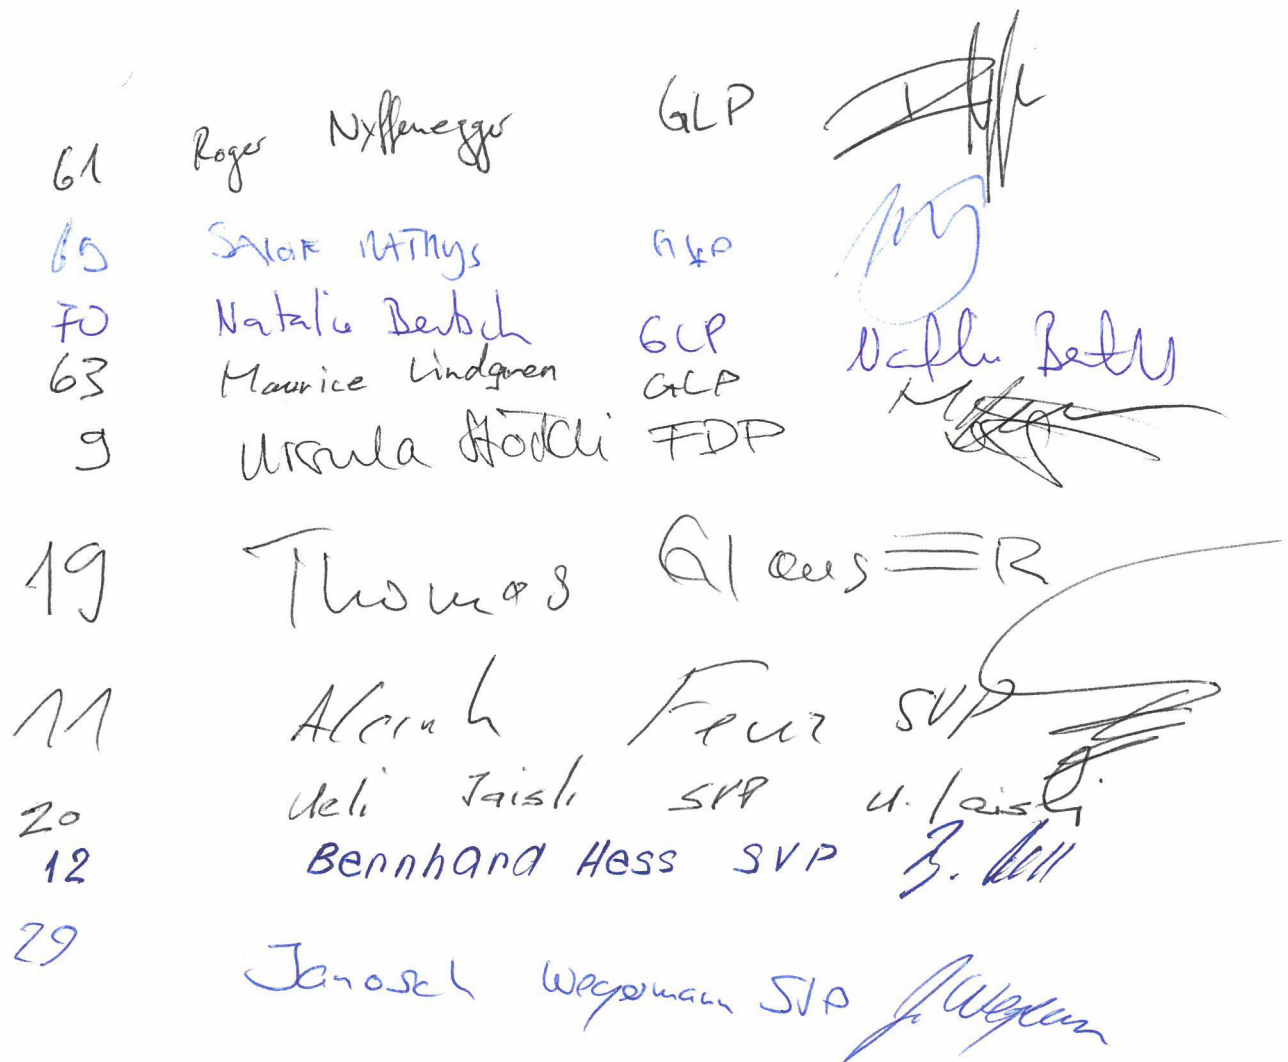 61 Roger Nyffenegger GLP
69 MAThys GLP
70 Natalie Bertsch GLP
63 Maurice Lindgren GLP
9 Ursula Stöckli FDP
19 Thomas Glaus R
11 Feuz SVP
20 Ueli Jaisli SVP U. Jaisli
12 Bernhard Hess SVP B. Hess
29 Janosch Wegermann SVP